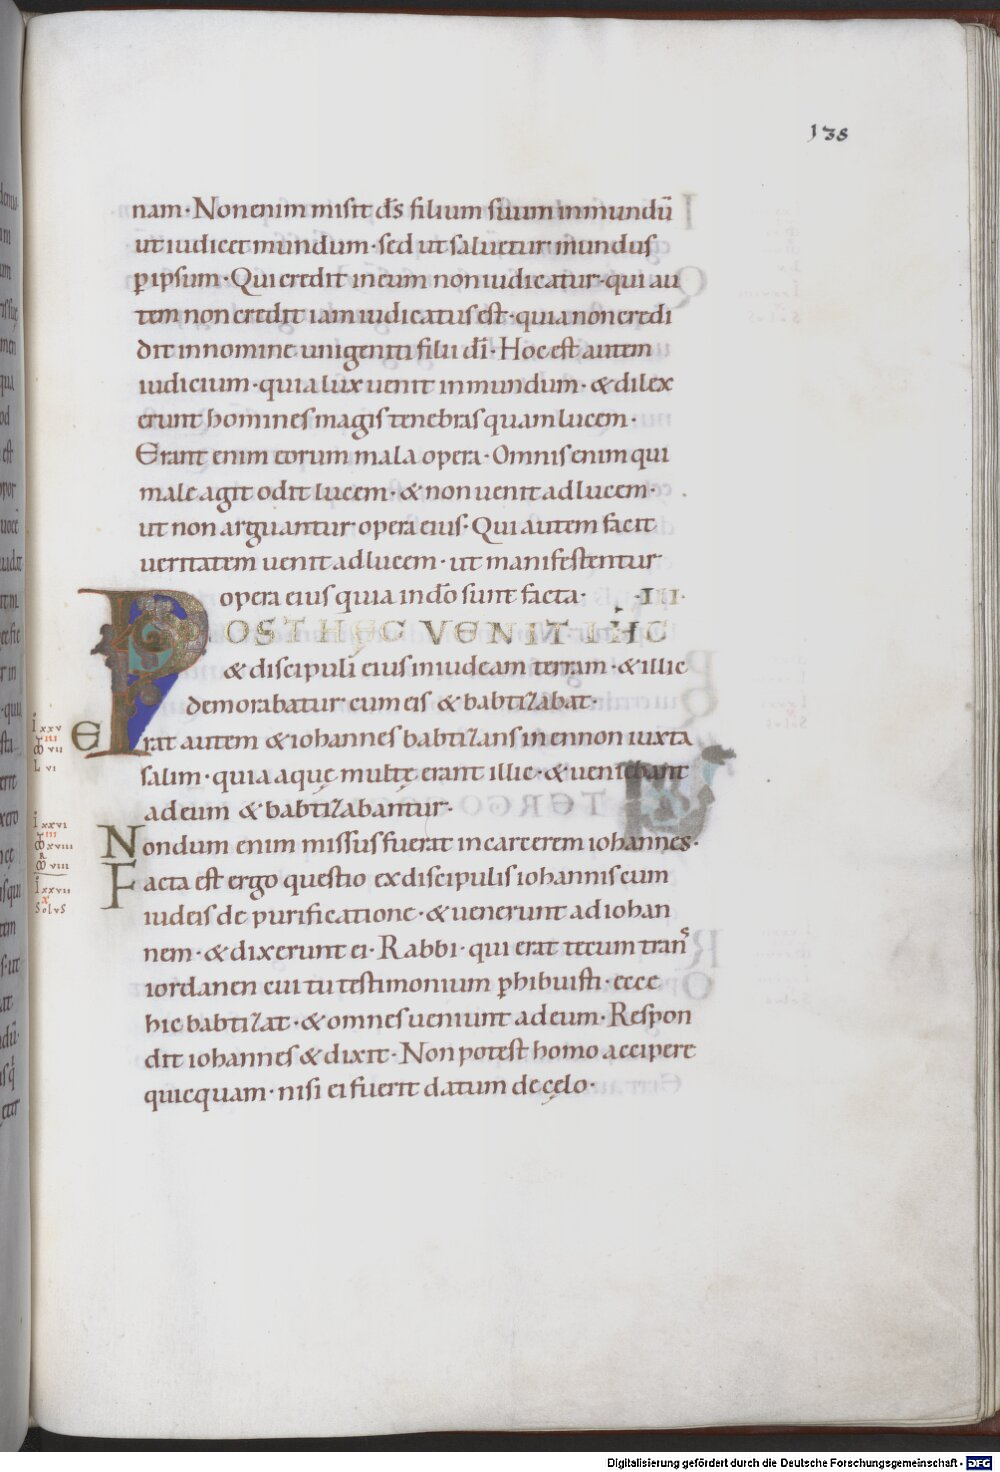 138
nam· Non enim misit ds̄ filium suum in mundū
ut iudicet mundum· sed ut saluetur mundus
p̱ ipsum· Qui credit in eum non iudicatur· qui au
tem non credit iam iudicatus est· quia non credi
dit in nomine unigeniti filii dī· Hoc est autem
iudicium· quia lux uenit in mundum· & dilex
erunt homines magis tenebras quam lucem·
Erant enim eorum mala opera· Omnis enim qui
male agit odit lucem· & non uenit ad lucem·
ut non arguantur opera eius· Qui autem facit
ueritatem uenit ad lucem· ut manifestentur
opera eius quia in dō sunt facta· ·III·
POST HĘC VENIT IHC
& discipuli eius in iudeam terram· & illic
demorabatur cum eis & babtizabat·
I xxv
III
ω vii
L vi
Erat autem & iohannes babtizans in ennon iuxta
salim· quia aquę multę erant illic· & ueniebant
ad eum & babtizabantur·
I xxvi
III
ω xviii
R
ω viii
Nondum enim missus fuerat in carcerem iohannes·
I xxvii
X
Solus
Facta est ergo questio ex discipulis iohannis cum
iudeis de purificatione· & uenerunt ad iohan
nem· & dixerunt ei· Rabbi· qui erat tecum trans
iordanen cui tu testimonium p̱hibuisti· ecce
hic babtizat· & omnes ueniunt ad eum· Respon
dit iohannes & dixit· Non potest homo accipere
quicquam· nisi ei fuerit datum de cęlo·
Digitalisierung gefördert durch die Deutsche Forschungsgemeinschaft - DFG